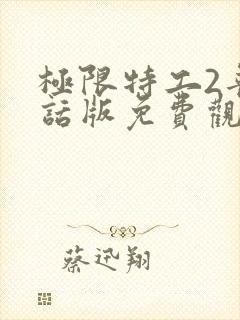 極限特工2
話版免費觀
蔡迅翔